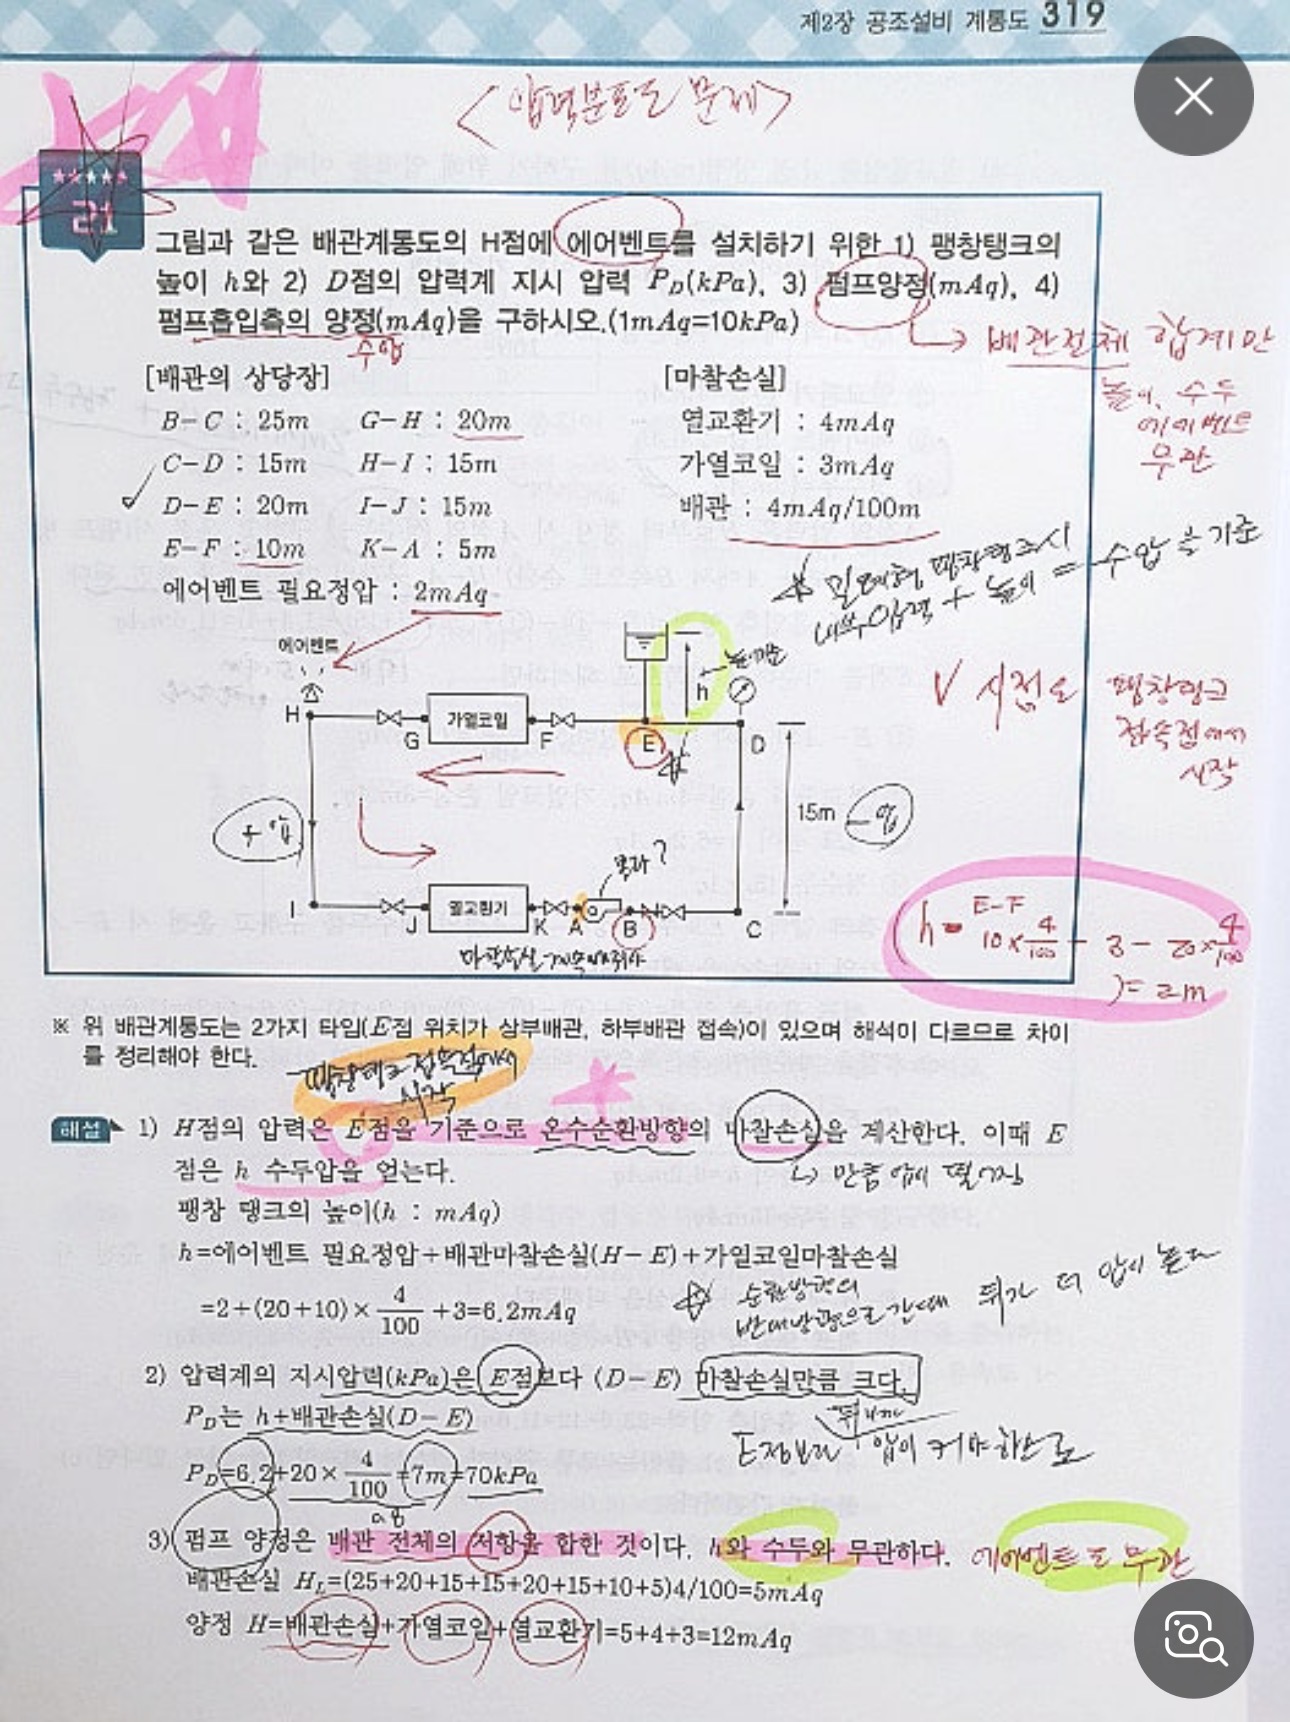 제2장 공조설비 계통도 319
<압력분포도 문제>
★★★★★
21
그림과 같은 배관계통도의 H점에 에어벤트를 설치하기 위한 1) 팽창탱크의
높이 h와 2) D점의 압력계 지시 압력 P_D(kPa), 3) 펌프양정(mAq), 4)
펌프흡입측의 양정(mAq)을 구하시오.(1mAq=10kPa)
수압
→ 배관전체 합계만
높이, 수두
에어벤트
무관
[배관의 상당장] [마찰손실]
B-C : 25m G-H : 20m 열교환기 : 4mAq
C-D : 15m H-I : 15m 가열코일 : 3mAq
D-E : 20m I-J : 15m 배관 : 4mAq/100m
E-F : 10m K-A : 5m
에어벤트 필요정압 : 2mAq
밀폐형 팽창탱크시
내부압력 + 높이 = 수압 을 기준
에어벤트
h
H G 가열코일 F E D
V 시점은 팽창탱크
접속점에서
시작
+압
15m
-압
I J 열교환기 K A B C
마찰손실 계속빼줘야
h = E-F
10×4/100 - 3 - 20×4/100
)= 2m
※ 위 배관계통도는 2가지 타입(E점 위치가 상부배관, 하부배관 접속)이 있으며 해석이 다르므로 차이
를 정리해야 한다.
팽창탱크 접속점에서
시작
해설 1) H점의 압력은 E점을 기준으로 온수순환방향의 마찰손실을 계산한다. 이때 E
점은 h 수두압을 얻는다.
만큼 압이 떨어짐
팽창 탱크의 높이(h : mAq)
h=에어벤트 필요정압+배관마찰손실(H-E)+가일코일마찰손실
=2+(20+10)×4/100+3=6.2mAq
순환방향의
반대방향으로 갈때 뒤가 더 압이 높다
2) 압력계의 지시압력(kPa)은 E점보다 (D-E) 마찰손실만큼 크다.
P_D는 h+배관손실(D-E)
E점보다 압이 커야 하므로
P_D=6.2+20×4/100=7m=70kPa
3) 펌프 양정은 배관 전체의 저항을 합한 것이다. h와 수두와 무관하다. 에어벤트도 무관
배관손실 H_L=(25+20+15+15+20+15+10+5)4/100=5mAq
양정 H=배관손실+가열코일+열교환기=5+4+3=12mAq